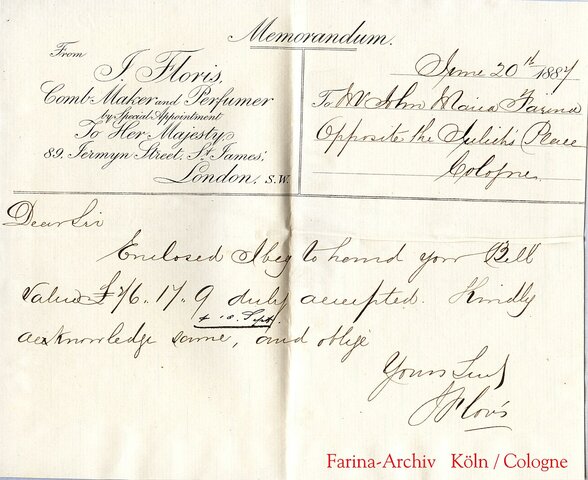 Memorandum.
From
J. Floris,
Comb Maker and Perfumer
by Special Appointment
To Her Majesty
89, Jermyn Street, St. James',
London, S.W.
June 20th 1887
To Mr John Maria Farina
Opposite the Julich's Place
Cologne
Dear Sir
Enclosed I beg to hand your Bill
value £76.17.9 duly accepted. Kindly
+ 18. Sept.
acknowledge same, and oblige
Yours
J Floris
Farina-Archiv Köln / Cologne